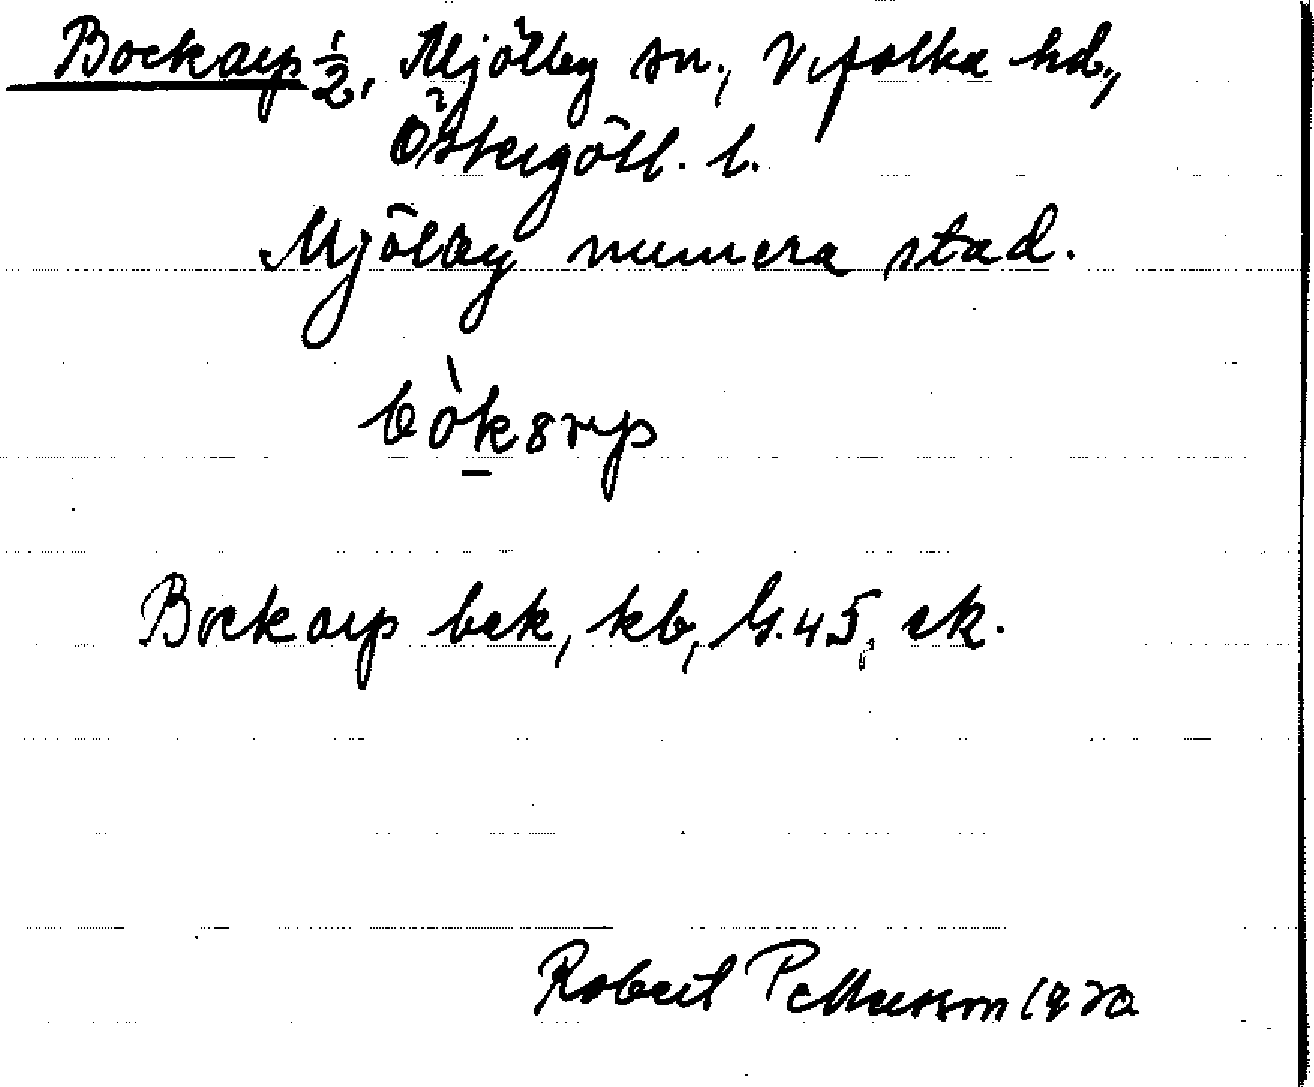 Bockarp ½, Mjölby sn., Vifolka hd.,
Östergötl. l.
Mjölby numera stad.
bòk8rp
Bockarp bek, kb, G.45, ek.
Robert Pettersson 1920